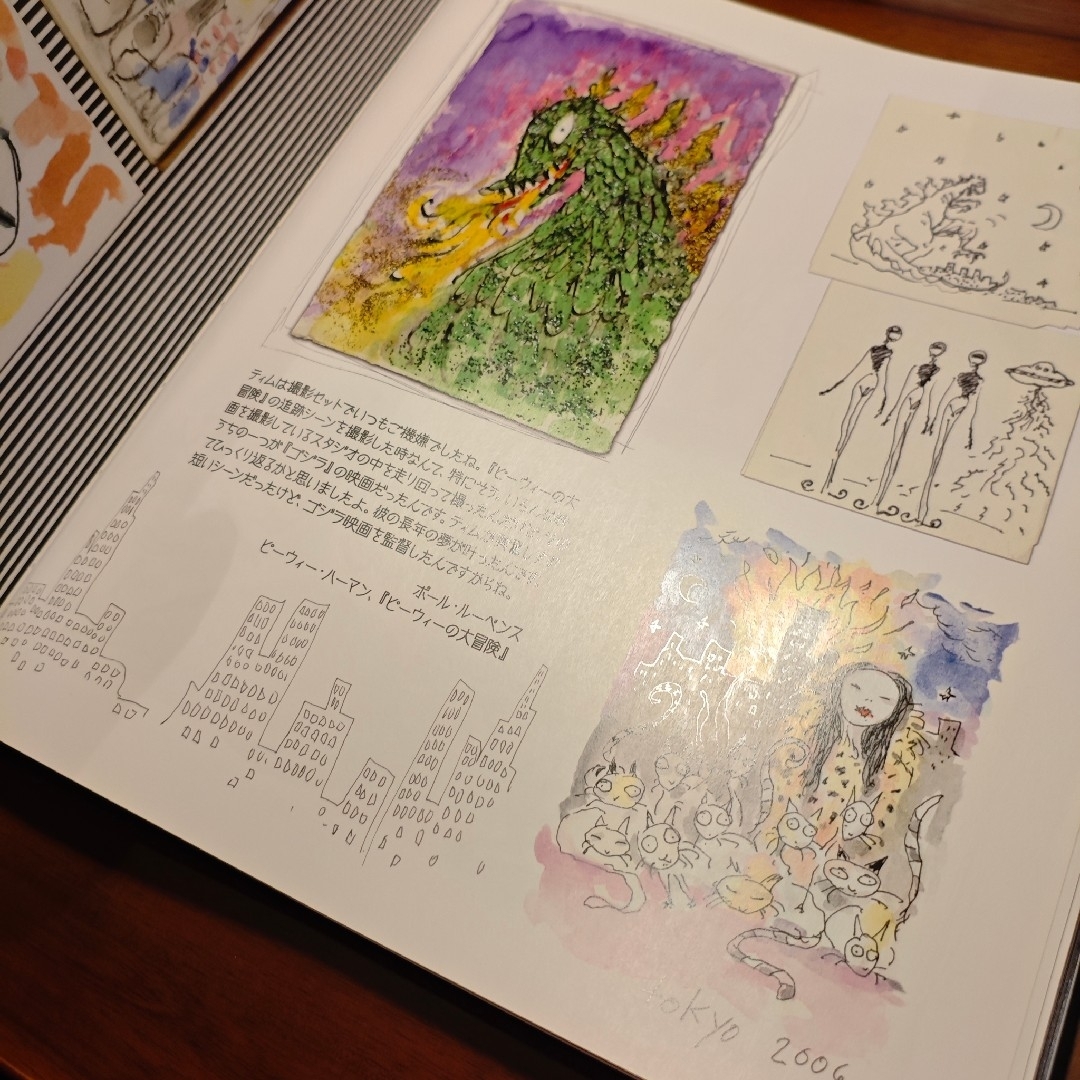 ティムは撮影セットでいつもご機嫌でしたね。『ピーウィーの大
冒険』の追跡シーンを撮影した時なんて、特にそう。
画を撮影しているスタジオの中を走り回って撮った
うちの一つが『ゴジラ』の映画だったんです。ティムが
てひっくり返るかと思いましたよ。彼の長年の夢が叶ったんです。
短いシーンだったけど、ゴジラ映画を監督したんですからね。
ポール・ルーベンス
ピーウィー・ハーマン、『ピーウィーの大冒険』
tokyo 2006